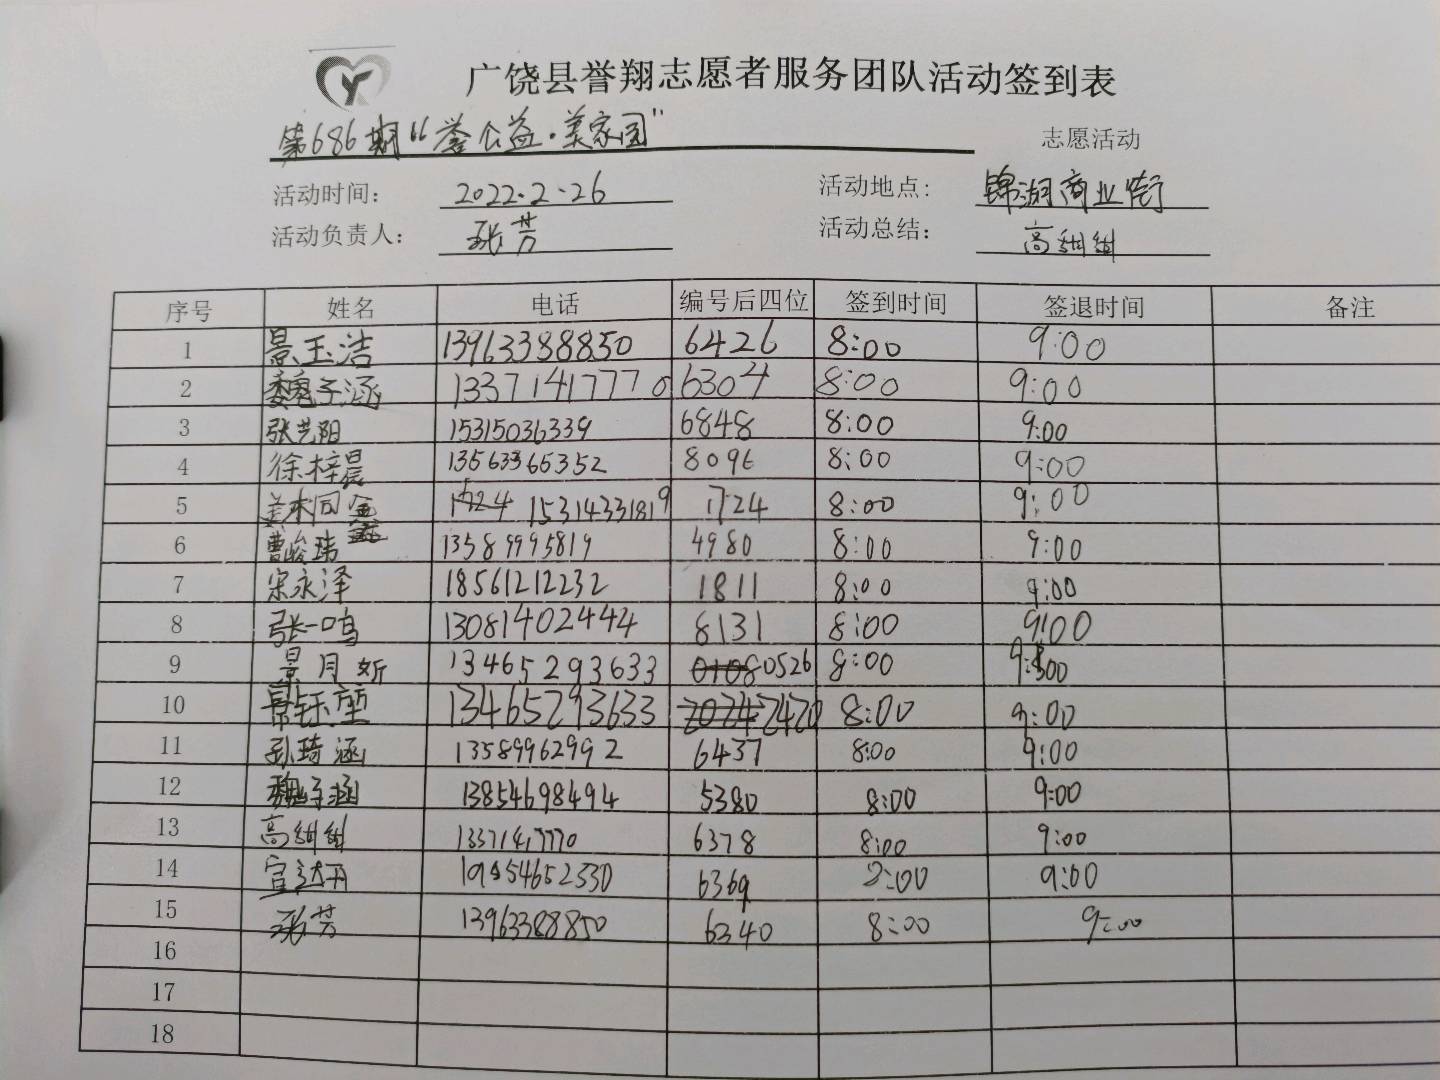 广饶县誉翔志愿者服务团队活动签到表
第686期“誉公益·美家园” 志愿活动
活动时间: 2022.2.26 活动地点: 锦湖商业街
活动负责人: 张芳 活动总结: 高甜甜
序号 姓名 电话 编号后四位 签到时间 签退时间 备注
1 景玉洁 13963388850 6426 8:00 9:00
2 魏子涵 13371417770 6304 8:00 9:00
3 张艺阳 15315036339 6848 8:00 9:00
4 徐梓晨 13563365352 8096 8:00 9:00
5 15314331819 1724 8:00 9:00
6 曹峻玮 13589995819 4980 8:00 9:00
7 宋永泽 18561212232 1811 8:00 9:00
8 张一鸣 13081402444 8131 8:00 9:00
9 景月昕 13465293633 0526 8:00 9:00
10 13465293633 7470 8:00 9:00
11 孙琦涵 13589962992 6437 8:00 9:00
12 魏子涵 13854698494 5380 8:00 9:00
13 高甜甜 13371417770 6378 8:00 9:00
14 6369 8:00 9:00
15 张芳 13963388850 6340 8:00 9:00
16
17
18